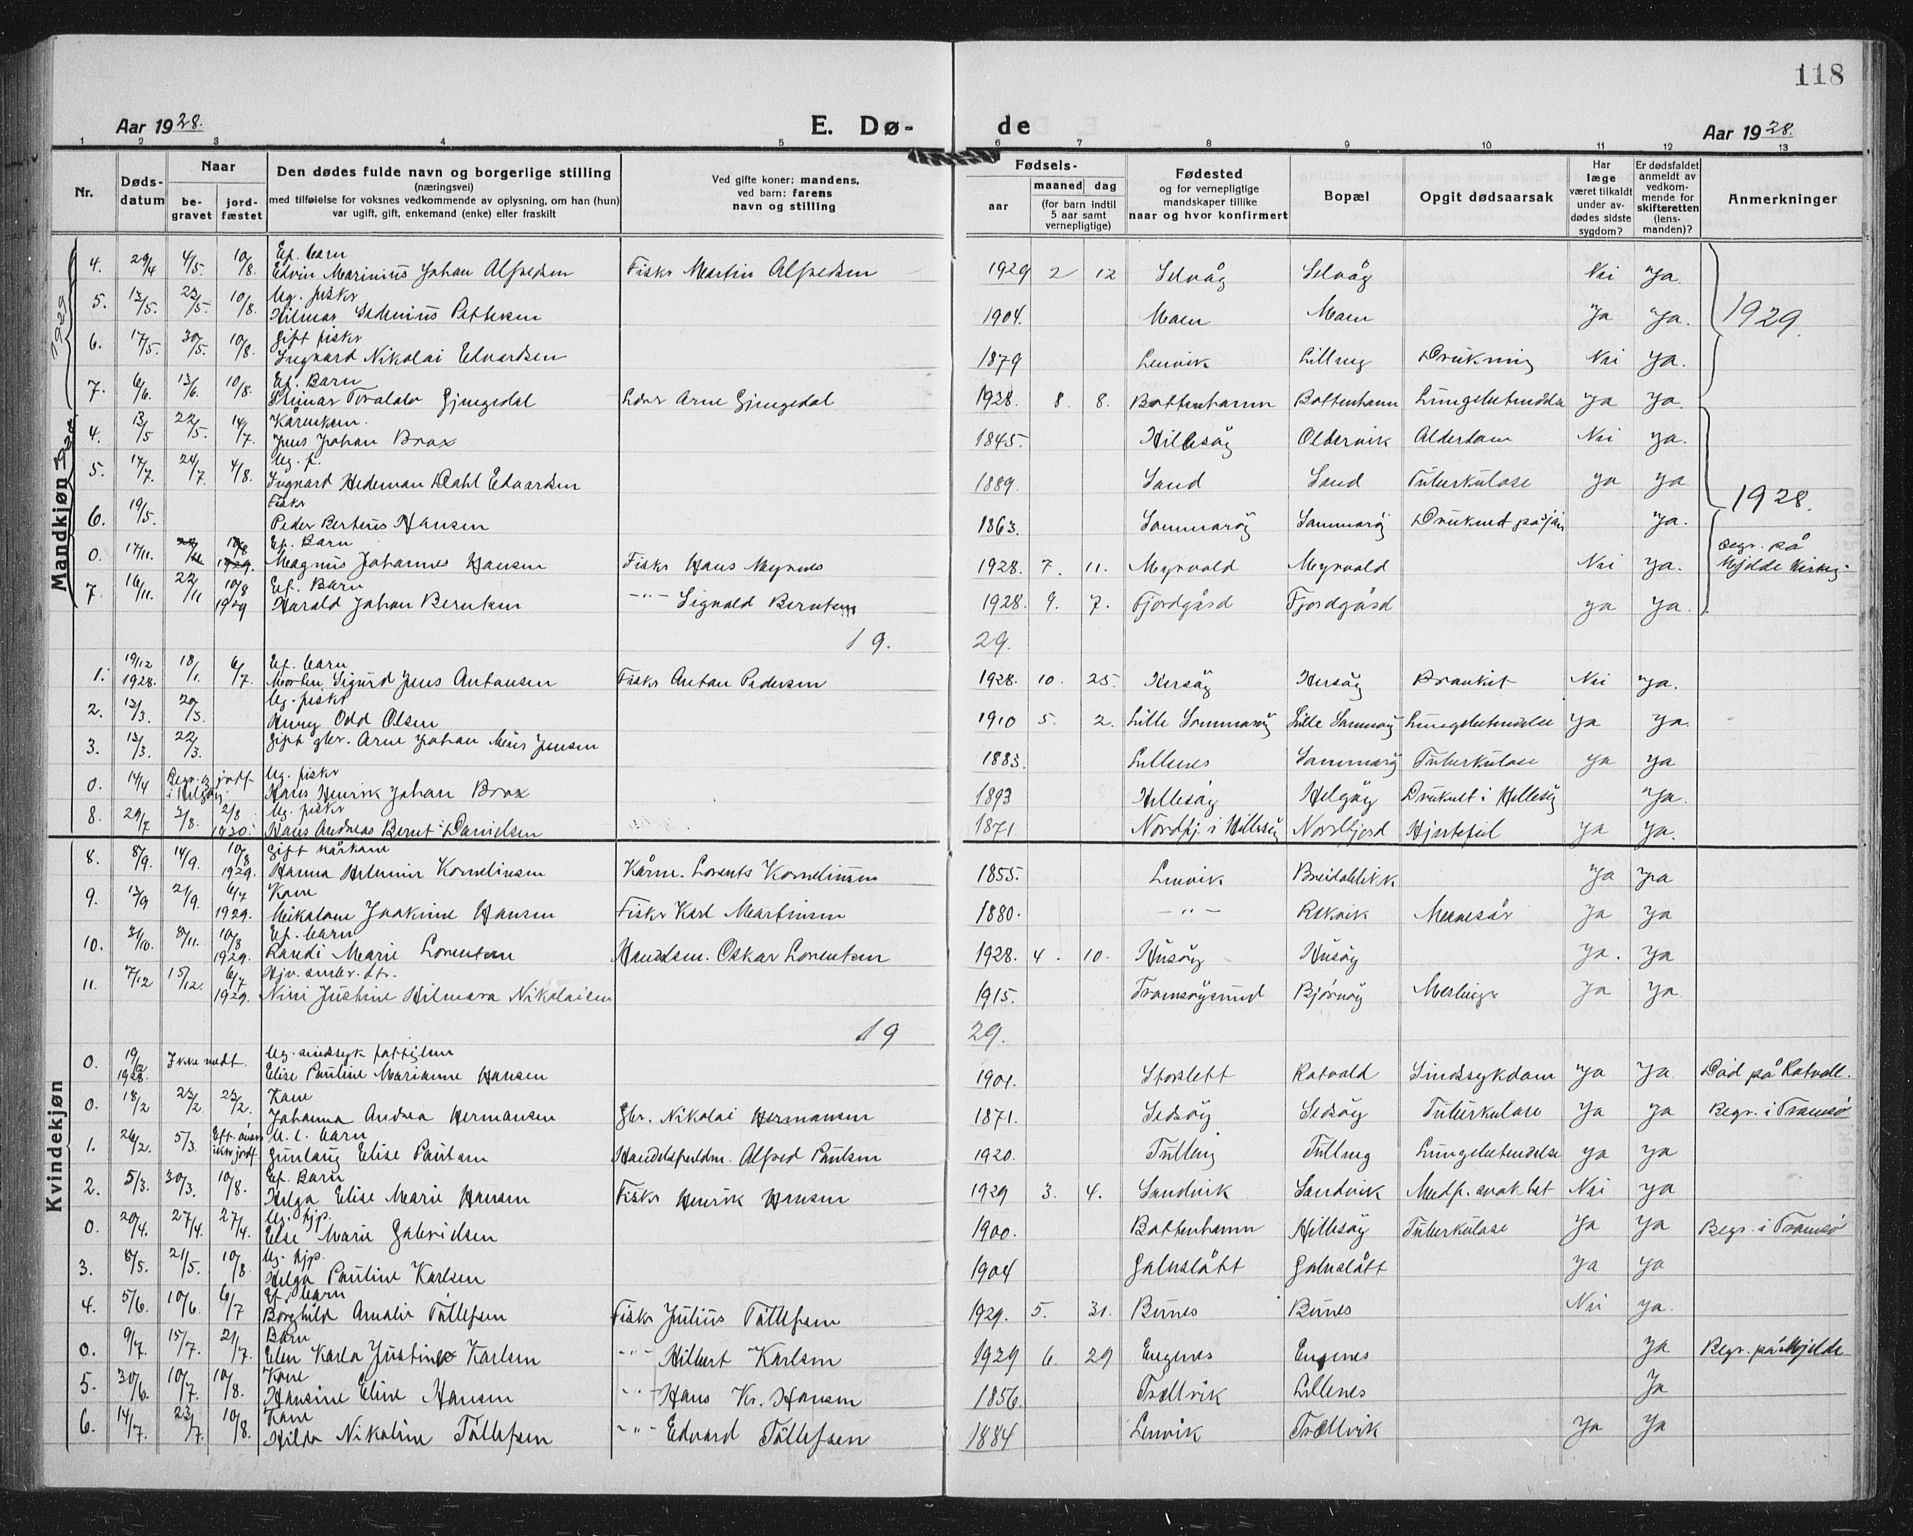 118
Aar 1928.
E. Dø-
de
Aar 1928.
1 2 3 4 5 6 7 8 9 10 11 12 13
Nr.
Døds-
datum
Naar
be-
gravet
jord-
fæstet
Den dødes fulde navn og borgerlige stilling
(næringsvei)
med tilføielse for voksnes vedkommende av oplysning, om han (hun)
var ugift, gift, enkemand (enke) eller fraskilt
Ved gifte koner: mandens,
ved barn: farens
navn og stilling
Fødsels-
aar
maaned dag
(for barn indtil
5 aar samt
vernepligtige)
Fødested
og for vernepligtige
mandskaper tillike
naar og hvor konfirmert
Bopæl
Opgit dødsaarsak
Har
læge
været tilkaldt
under av-
dødes sidste
sygdom?
Er dødsfaldet
anmeldt av
vedkom-
mende for
skifteretten
(lens-
manden)?
Anmerkninger
Mandkjøn
1929
4. 29/4 4/5. 10/8. Egt. barn
Edvin Marinius Johan Alfredsen Fisker Martin Alfredsen 1929 2 12 Selvåg Selvåg Nei Ja.
5. 13/5. 23/5. 10/8. Ug. fisker
Hilmar Pettersen 1904. Maen Maen Ja Ja. 1929.
6. 17/5. 30/5. 10/8. Gift fisker
Ingvard Nikolai Edvardsen 1879 Lenvik Drukning Nei Ja.
7. 6/6. 13/6. 10/8. Egt. Barn
Gjengedal Arne Gjengedal 1928. 8. 8. Bottenhamn Bottenhamn Ja Ja.
4. 13/5 22/5. 14/7.
Jens Johan Brox 1845. Hillesøy Oldervik Alderdom Nei Ja.
5. 17/7. 24/7. 4/8. Ug. f.
Ingvard Hedeman Dahl Edvardsen 1889. Sand Sand Tuberkulose Ja Ja
6. 19/5. Fisker
Peder Berteus Hansen 1863. Sommarøy Sommarøy Druknet på sjøen Ja. 1928.
0. 17/11. 1929. Egt. Barn
Magnus Johannes Hansen Fisker Hans 1928. 7. 11. Myrvold Myrvold Nei Ja. Begr. på
Mjelde Kirkeg.
7 16/11. 22/11 10/8 1929 Egt. Barn
Harald Johan Berntsen -"- Sigvald Berntsen 1928. 9. 7. Fjordgård Fjordgård Ja Ja.
19. 29.
1. 19/12 1928. 18/1. 6/7. Egt. barn
Morten Sigurd Jens Antonsen Fisker Anton Pedersen 1928. 10. 25. Hersøy Hersøy Bronkit Nei Ja.
2. 13/3. 20/3. Ug. fisker
Henry Odd Olsen 1910 5. 2. Lille Sommarøy Lille Sommarøy Lungebetendelse Ja Ja
3. 13/3. 22/3. Gift gbr. Arne Johan Meier Jensen 1883. Lillenes Sommarøy Tuberkulose Ja Ja
0. 14/4 Begr. og jordf.
i Helgøy Ug. fisker
Hans Henrik Johan Brox 1893 Hillesøy Helgøy Druknet i Hillesøy Ja.
8. 29/7 3/8. 2/8 1930. Ug. fisker
Hans Andreas Bernt Danielsen 1871 Nordfj. i Hillesøy Nordfjord Hjertefeil Ja Ja.
Kvindekjøn
8. 8/9. 14/9. 10/8 1929. Gift kårkone
Hanna Korneliusen Kårm. Lorents Korneliussen 1855. Lenvik Breidablikk Ja Ja
9. 13/9 21/9. 6/7 1929. Kone
Nikoline Joakime Hansen Fisker Karl Martinsen 1880. -"- Rekvik Ja Ja
10. 8/11. 10/8 1929. Egt. barn
Randi Marie Lorentsen Handelsm. Oskar Lorentsen 1928. 4. 10. Husøy Husøy Ja. Ja
11. 7/12 15/12. 6/7 1929. Hjv. arbr. dtr.
Nini Justine Hilmara Nikolaisen 1915. Tromsøysund Bjørnøy Meslinger Ja Ja
19 29.
0. 19/12 1928. Ikke medt. Ug. sindssyk fattiglem
Elise Pauline Marianne Hansen 1901. Storslett Rotvold Sindssykdom Ja Ja Død på Rotvoll.
0. 18/2 23/2 23/2. Kone
Johanna Andrea Hermansen Gbr. Nikolai Hermansen 1871. Sedsøy Sedsøy Tuberkulose Ja Ja Begr. i Tromsø
1. 26/2. 5/3. Eft. ønske
ikke jordf. U. e. barn
Gunlaug Elise Paulsen Handelsfuldm. Alfred Paulsen 1920. Tulleng Tulleng Lungebetendelse Ja Ja
2. 5/3. 30/3. 10/8. Egt. Barn
Helga Elise Marie Hansen Fisker Henrik Hansen 1929 3. 4. Sandvik Sandvik Medf. svakhet Nei Ja
0. 20/4. 27/4. 27/4. Ug. hjp.
Else Marie Gabrielsen 1900. Bottenhamn Hillesøy Tuberkulose Ja Ja Begr. i Tromsø
3. 8/5. 21/5. 10/8. Ug. hjp.
Helga Pauline Karlsen 1904 Galnslått Galnslått Ja Ja
4. 5/6. 10/6. 6/7 Egt. barn
Borghild Amalie Tollefsen Fisker Julius Tollefsen 1929. 5. 31. Nei Ja.
0. 9/7. 15/7. 21/7. Barn
Elen Karla Justine Karlsen -"- Hilbert Karlsen 1929 6 29 Engenes Engenes Ja Begr. på Mjelde
5. 30/6. 10/7. 10/8. Kone
Hansine Eline Hansen -"- Hans Kr. Hansen 1856. Trællvik Lillenes Ja
6. 14/7. 23/7. 10/8. Kone
Hilda Nikoline Tollefsen -"- Edvard Tollefsen 1884 Lenvik Trællvik Ja Ja